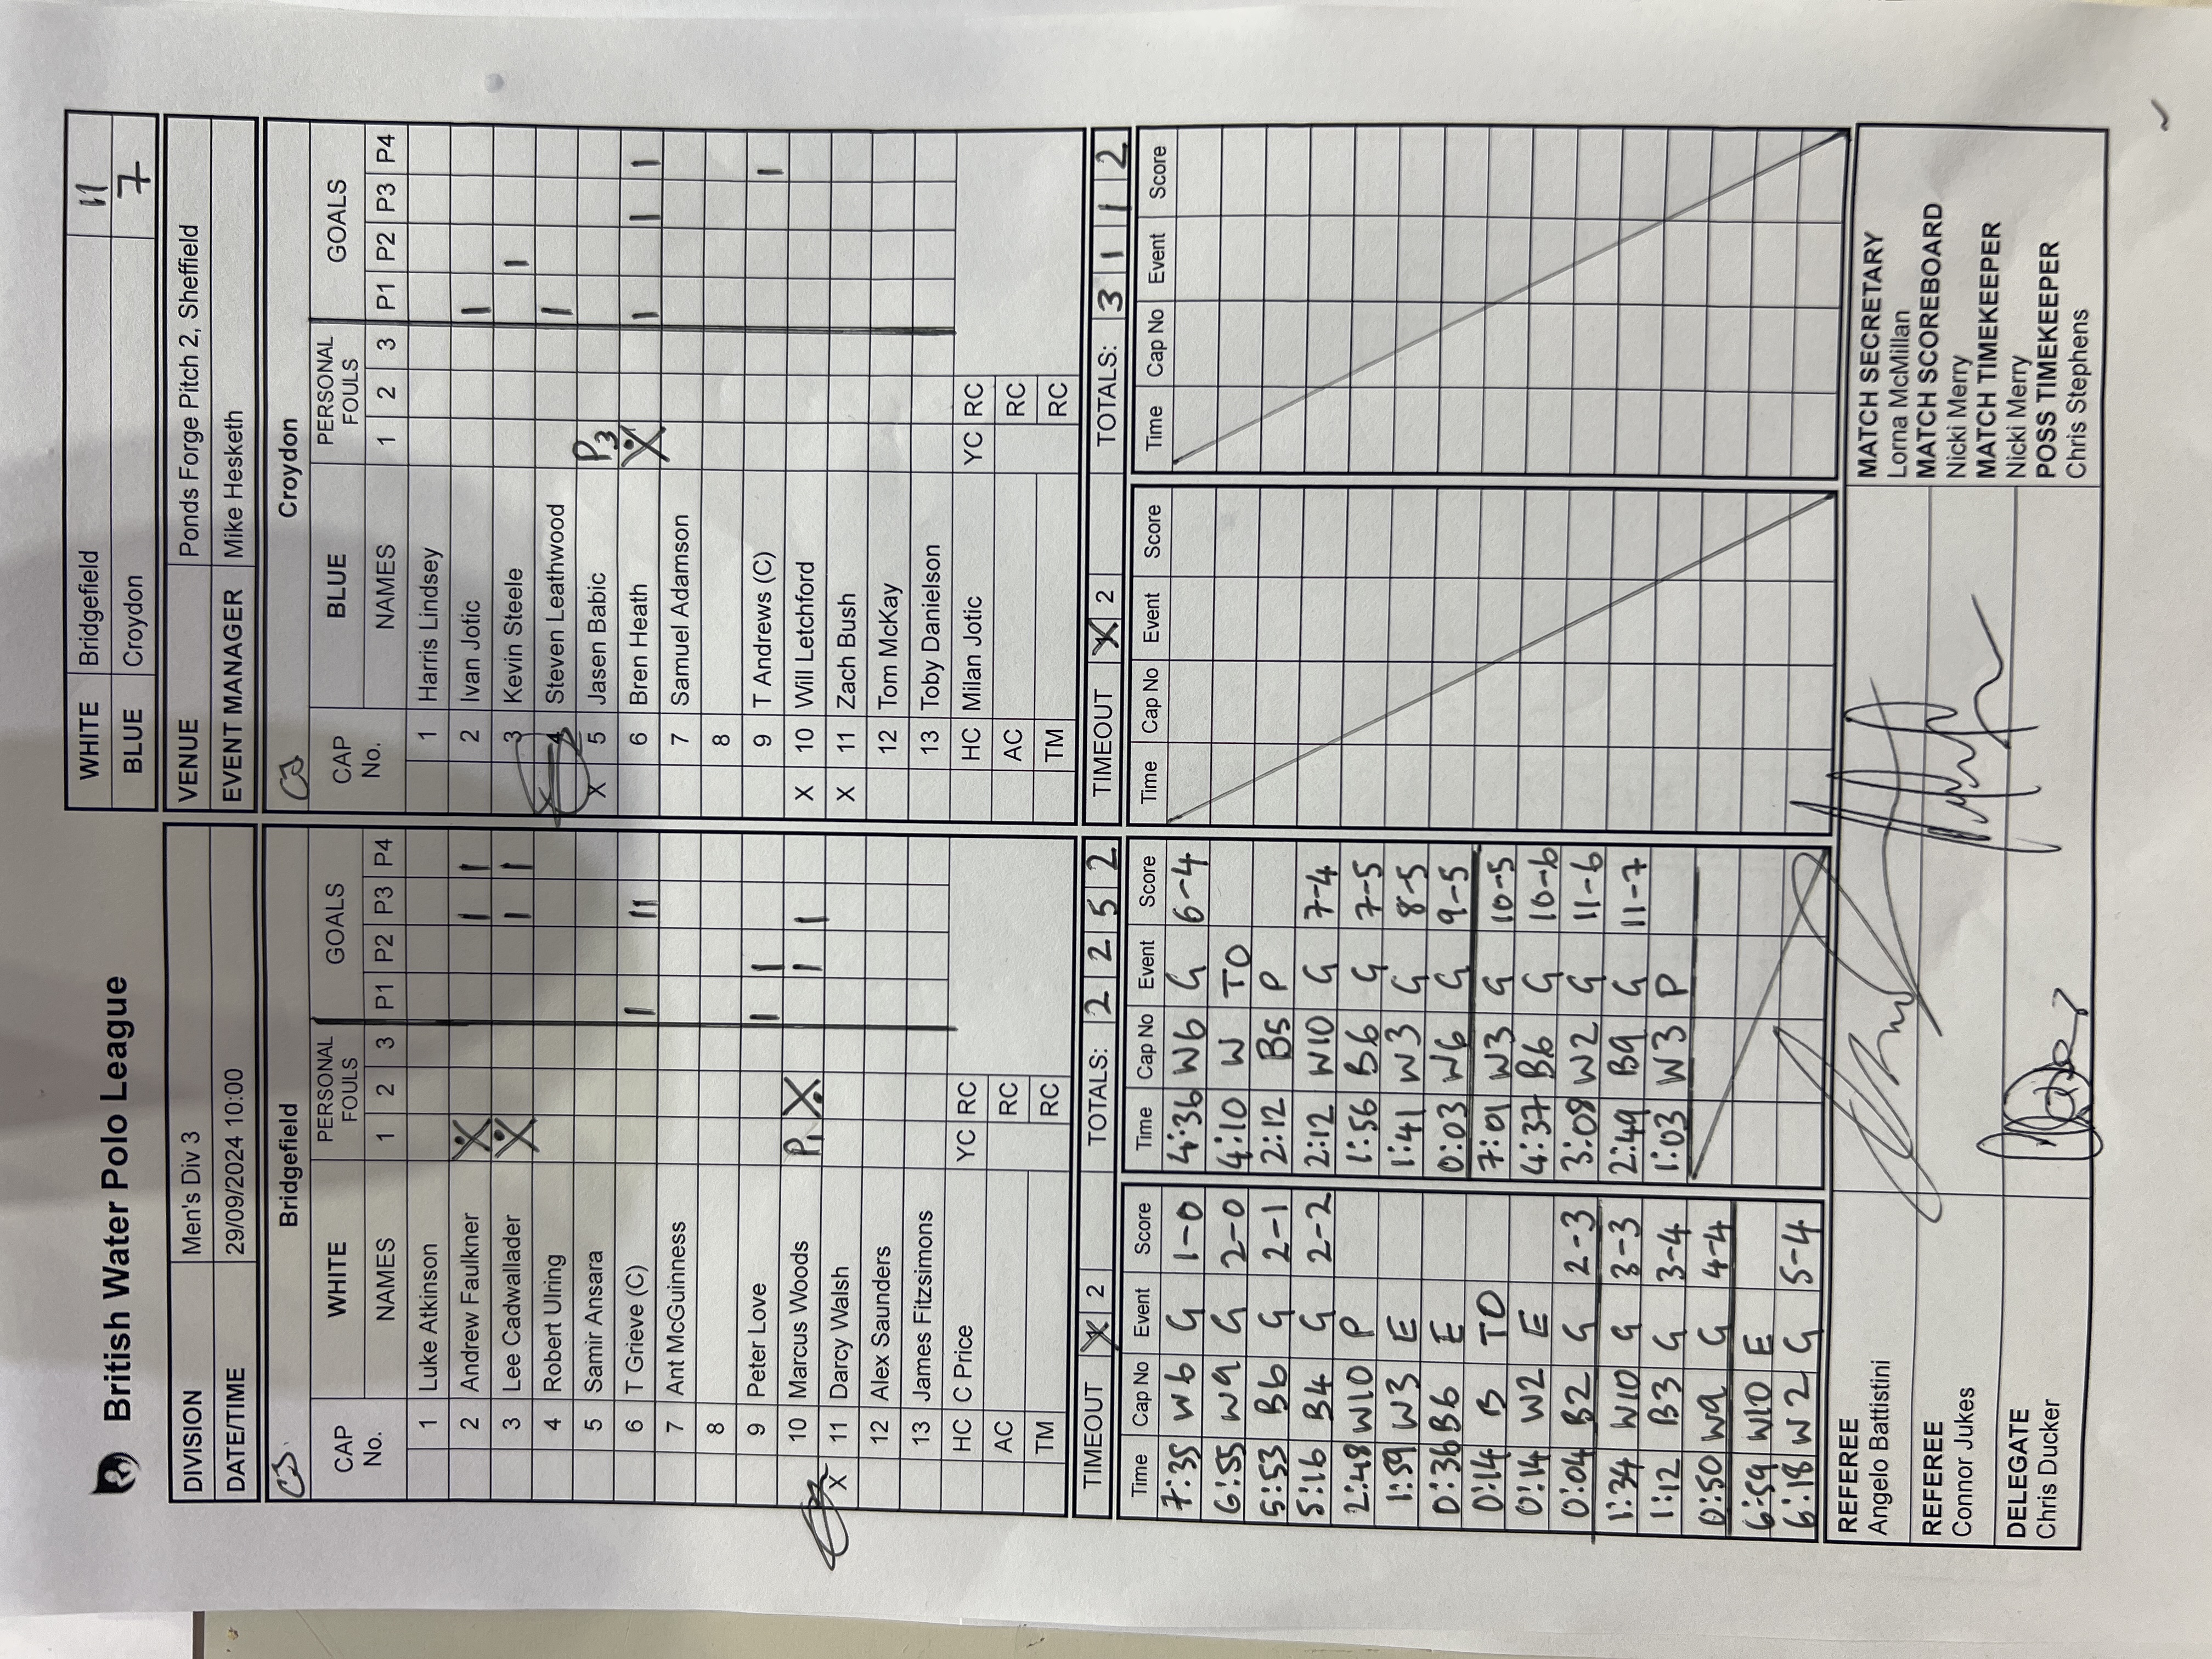 British Water Polo League
WHITE Bridgefield 11
BLUE Croydon 7
DIVISION Men's Div 3
DATE/TIME 29/09/2024 10:00
VENUE Ponds Forge Pitch 2, Sheffield
EVENT MANAGER Mike Hesketh
Bridgefield
CAP No. WHITE PERSONAL FOULS GOALS
NAMES 1 2 3 P1 P2 P3 P4
1 Luke Atkinson
2 Andrew Faulkner X I I
3 Lee Cadwallader X I I
4 Robert Ulning
5 Samir Ansara
6 T Grieve (C) I II
7 Ant McGuinness
8
9 Peter Love I I
10 Marcus Woods P1 X I I
X 11 Darcy Walsh
12 Alex Saunders
13 James Fitzsimons
HC C Price YC RC
AC RC
TM RC
TIMEOUT X 2 TOTALS: 2 2 5 2
Croydon
CAP No. BLUE PERSONAL FOULS GOALS
NAMES 1 2 3 P1 P2 P3 P4
1 Harris Lindsey
2 Ivan Jotic I
3 Kevin Steele I
4 Steven Leathwood I
X 5 Jasen Babic P3
6 Bren Heath X I I I
7 Samuel Adamson
8
9 T Andrews (C) I
X 10 Will Letchford
X 11 Zach Bush
12 Tom McKay
13 Toby Danielson
HC Milan Jotic YC RC
AC RC
TM RC
TIMEOUT X 2 TOTALS: 3 1 1 2
Time Cap No Event Score
7:35 W6 G 1-0
6:55 W9 G 2-0
5:53 B6 G 2-1
5:16 B4 G 2-2
2:48 W10 P
1:59 W3 E
0:36 B6 E
0:14 B TO
0:14 W2 E
0:04 B2 G 2-3
1:34 W10 G 3-3
1:12 B3 G 3-4
0:50 W9 G 4-4
6:59 W10 E
6:18 W2 G 5-4
Time Cap No Event Score
4:36 W6 G 6-4
4:10 W TO
2:12 B5 P
2:12 W10 G 7-4
1:56 B6 G 7-5
1:41 W3 G 8-5
0:03 W6 G 9-5
7:01 W3 G 10-5
4:37 B6 G 10-6
3:08 W2 G 11-6
2:49 B9 G 11-7
1:03 W3 P
Time Cap No Event Score
Time Cap No Event Score
REFEREE
Angelo Battistini
REFEREE
Connor Jukes
DELEGATE
Chris Ducker
MATCH SECRETARY
Lorna McMillan
MATCH SCOREBOARD
Nicki Merry
MATCH TIMEKEEPER
Nicki Merry
POSS TIMEKEEPER
Chris Stephens